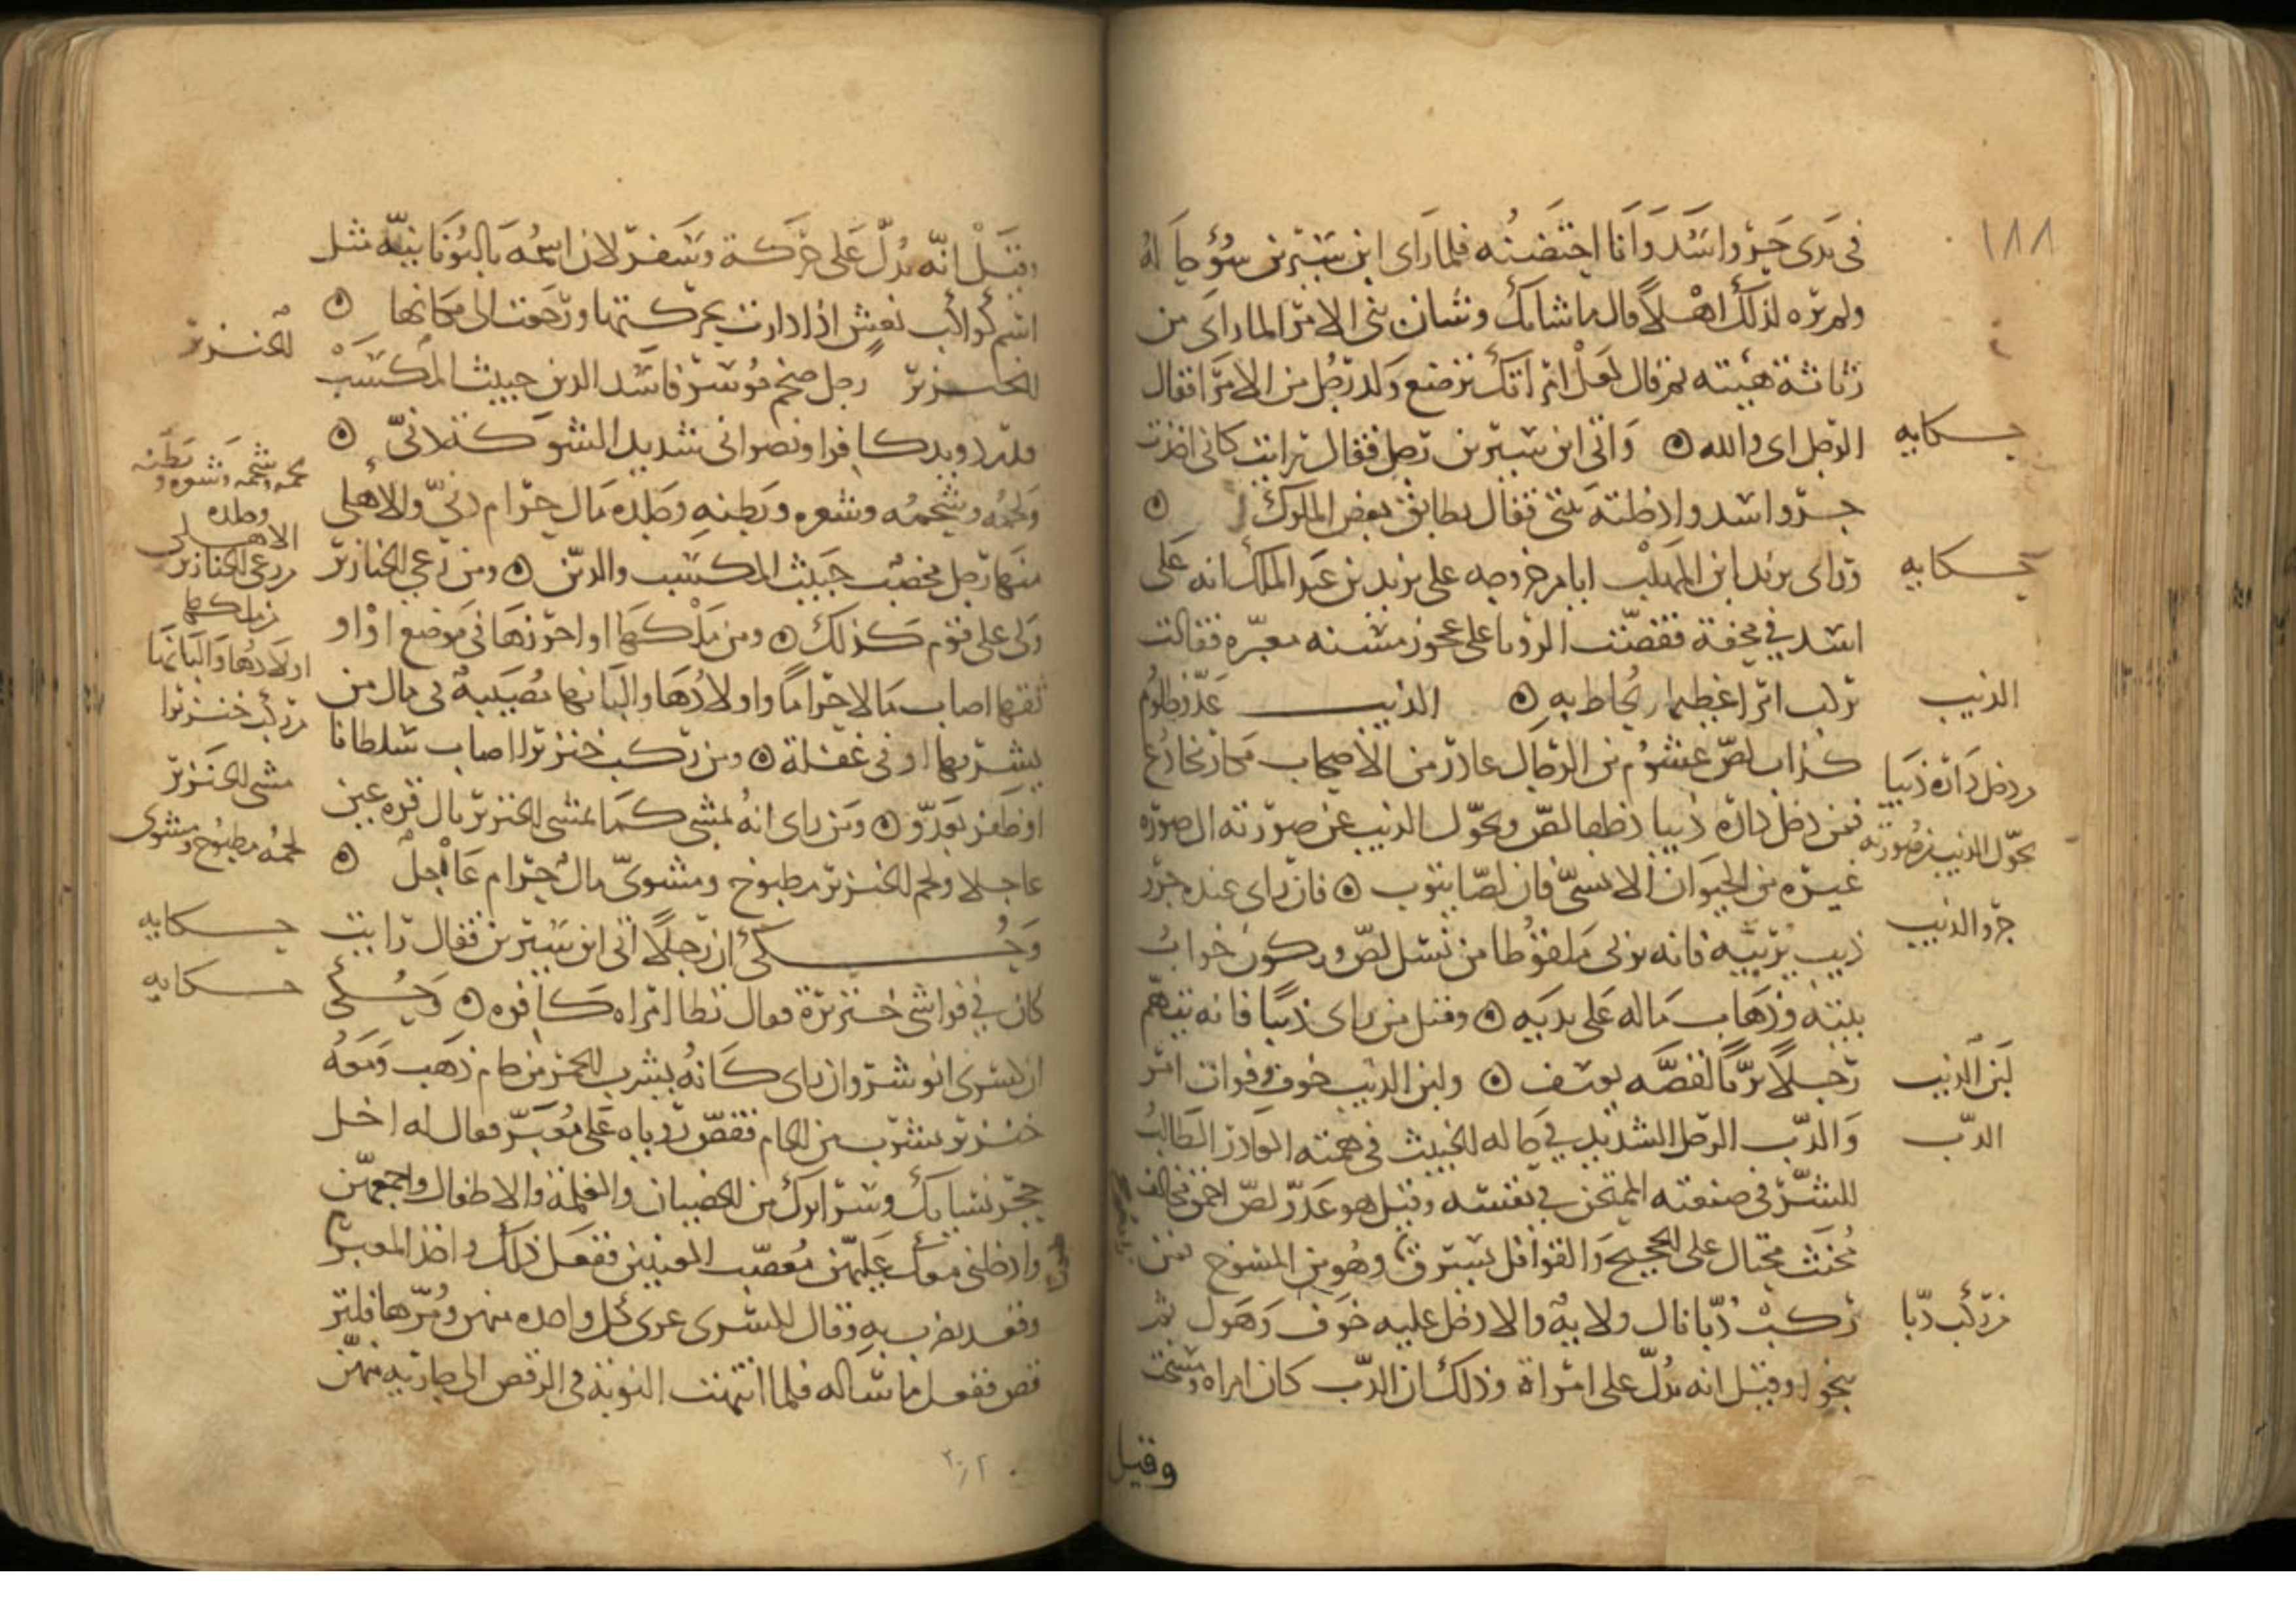 ١٨٨
في يدي جرو اسد وانا احتضنه فلما راى ابن سيرين سوء حاله
ولم يره لذلك اهلا قال ما شانك وشان بني الامرا لما راى من
رثاثة هيئته ثم قال لعل امراتك ترضع ولد رجل من الامرا فقال
الرجل اي والله ۞ واتى ابن سيرين رجل فقال رايت كاني اخذت
جرو اسد وادخلته بيتي فقال تطابق بعض الملوك ۞
وراى يزيد ابن المهلب ايام خروجه على يزيد بن عبد الملك انه على
اسد في محفة فقصت الرؤيا على عجوز مسنه معبره فقالت
تركب امرا عظيما يحاط به ۞ الذيب عدو ظلوم
كذاب لص غشوم من الرجال غادر من الاصحاب مكار مخادع
فمن دخل داره ذيبا دخلها لص وتحول الذيب عن صورته الى صورة
غيره من الحيوان الانسي فان لصا يتوب ۞ فان راى عنده جرو
ذيب يربيه فانه يربي ملقوطا من نسل لص ويكون خراب
بيته وذهاب ماله على يديه ۞ وقيل من راى ذيبا فانه يتهم
رجلا بريا لقصه يوسف ۞ ولبن الذيب خوف وفوات امر
والدب الرجل الشديد في حاله الخبيث في همته الغادر الطالب
للشر في صنعته الممتحن في نفسه وقيل هو عدو لص احمق مخالف
مخنث محتال على الحجيج والقوافل يسرق وهو من المسوخ فمن
ركب دبا نال ولاية والا دخل عليه خوف وهول ثم
ينجوا وقيل انه يدل على امراة وذلك ان الدب كان امراه ومسخت
وقيل
حكايه
حكايه
الذيب
من دخل داره ذيبا
تحول الذيب من صورته
جرو الذيب
لبن الذيب
الدب
من ركب دبا
وقيل انه يدل على حركة وسفر لان اسمه باليونانية مثل
اسم كواكب نعش اذا دارت بحركتها ورجعت الى مكانها ۞
الخنزير رجل ضخم موسر فاسد الدين خبيث المكسب
قذر ذو يد كافر او نصراني شديد الشوكة دني ۞
ولحمه وشحمه وشعره وبطنه وجلده مال حرام دني والاهلي
منها رجل مخصب خبيث المكسب والدين ۞ ومن رعى الخنازير
ولى على قوم كذلك ۞ ومن ملكها او احرزها في موضع او
ثقفها اصاب مالا حراما واولادها والبانها مصيبة في مال من
يشربها او في غفلة ۞ ومن ركب خنزيرا اصاب سلطانا
او ظفر بعدو ۞ ومن راى انه يمشي كما يمشي الخنزير نال قرة عين
عاجلا ولحم الخنزير مطبوخ ومشوي مال حرام عاجل ۞
وحكى ان رجلا اتى ابن سيرين فقال رايت
كان في فراشي خنزيرة فقال تطا امراه كافره ۞ وحكى
ان كسرى انوشروان راى كانه يشرب الخمر من جام ذهب ومعه
خنزير يشرب من الجام فقص روياه على معبر فقال له اخل
حجر نسايك وسراريك من الخصيان والغلمة والاطفال واجمعهن
وادخلني معك عليهن معصب العينين ففعل ذلك واخذ المعبر
وقعد يضرب به وقال لكسرى عرى كل واحده منهن ومرها فلتر
قص ففعل ما ساله فلما انتهت النوبة في الرقص الى جاريه منهن
الخنزير
لحمه وشحمه وشعره وبطنه
وجلده
الاهلي
من رعى الخنازير
من ملكها
اولادها والبانها
من ركب خنزيرا
مشى الخنزير
لحمه مطبوخ ومشوى
حكايه
حكايه